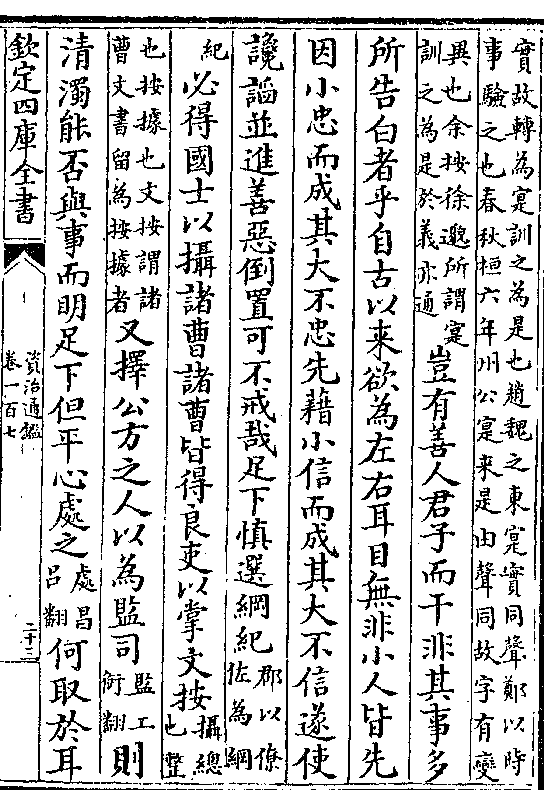 實故轉為寔訓之為是也趙魏之東寔實同聲鄭以時
事驗之也春秋桓六年州公寔来是由聲同故字有變
異也余按徐邈所謂寔
訓之為是於義亦通
豈有善人君子而干非其事多
所告白者乎自古以来欲為左右耳目無非小人皆先
因小忠而成其大不忠先藉小信而成其大不信遂使
讒謟並進善惡倒置可不戒哉足下慎選綱紀
郡以僚
佐為綱
紀
必得國士以攝諸曹諸曹皆得良吏以掌文按
攝總
也整
也按據也文按謂諸
曹文書留為按據者
又擇公方之人以為監司
監工
銜翻
則
清濁能否與事而明足下但平心處之
處昌
吕翻
何取於耳
欽定四庫全書
資治通鑑
卷一百七
二十三